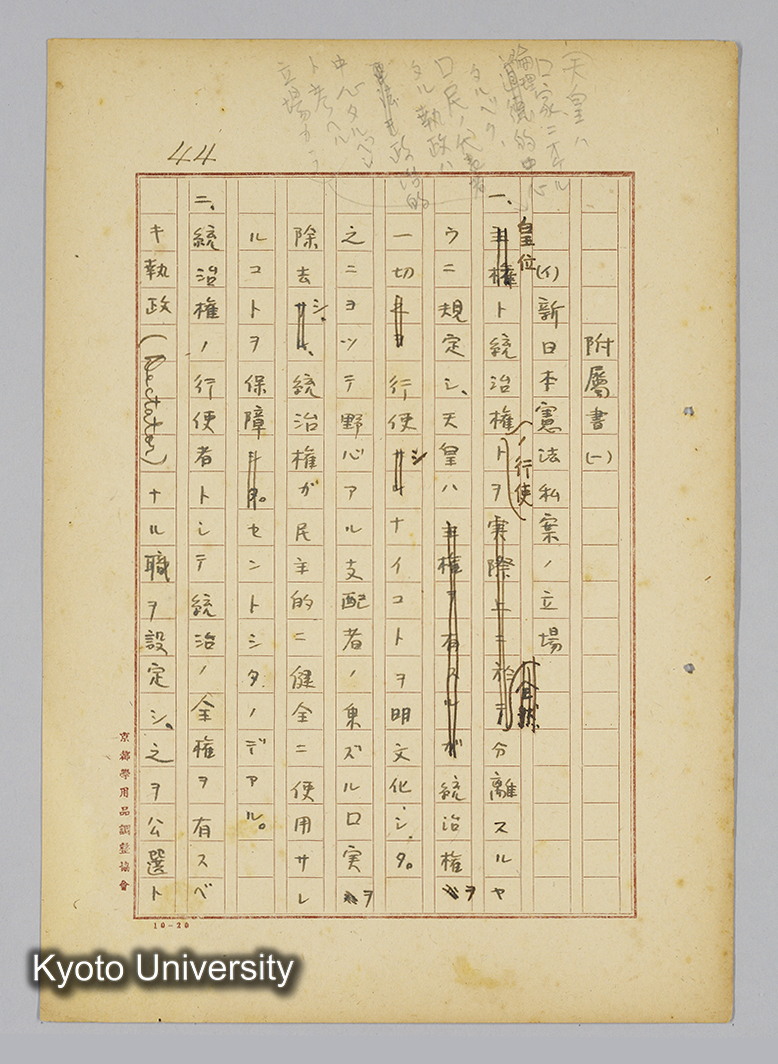 44
天皇ハ
口家ニオケル
倫理
道徳的中心
タルベク、
口民ノ代表者
タル執政ハ
政治的
中心タルベシ
ト考ヘル
立場
附屬書(一)
(イ)新日本憲法私案ノ立場
一、皇位ト統治権ノ行使トヲ実際上ニ於テ分離スルヤ
ウニ規定シ、天皇ハ主権ヲ有スルガ統治権ヲ
一切行使シナイコトヲ明文化シタ。
之ニヨツテ野心アル支配者ノ乗ズル口実ヲ
除去シ、統治権ガ民主的ニ健全ニ使用サレ
ルコトヲ保障セントシタノデアル。
二、統治権ノ行使者トシテ統治ノ全権ヲ有スベ
キ執政()ナル職ヲ設定シ、之ヲ公選ト
京都學用品調整協會
10-20
Kyoto University